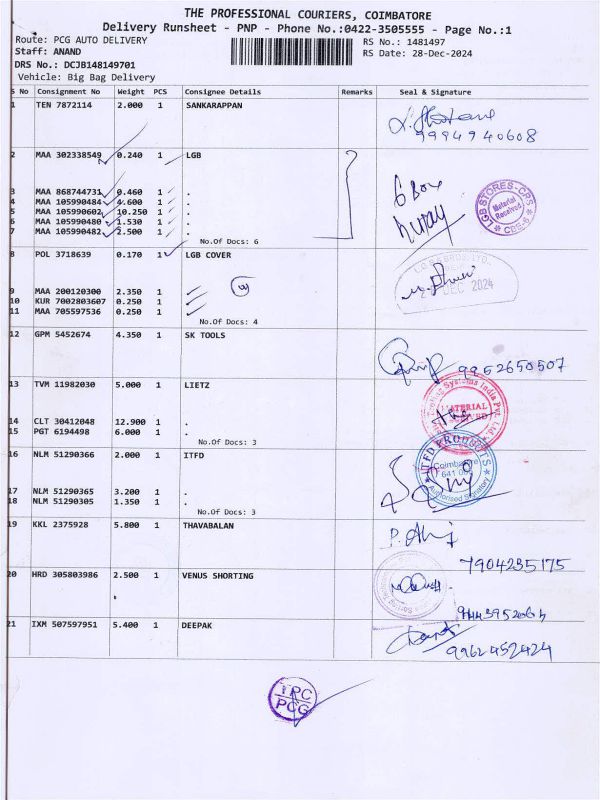 THE PROFESSIONAL COURIERS, COIMBATORE
Delivery Runsheet - PNP - Phone No.:0422-3505555 - Page No.:1
Route: PCG AUTO DELIVERY
RS No.: 1481497
Staff: ANAND
RS Date: 28-Dec-2024
DRS No.: DCJB148149701
Vehicle: Big Bag Delivery
S No Consignment No Weight PCS Consignee Details Remarks Seal & Signature
1 TEN 7872114 2.000 1 SANKARAPPAN
9994940608
2 MAA 302338549 0.240 1 LGB
3 MAA 868744731 0.460 1 .
6 Box
4 MAA 105990484 4.600 1 .
LGB STORES-CRS Material Received CBE-6
5 MAA 105990602 10.250 1 .
6 MAA 105990480 1.530 1 .
7 MAA 105990482 2.500 1 .
No.Of Docs: 6
8 POL 3718639 0.170 1 LGB COVER
9 MAA 200120300 2.350 1 .
DEC 2024
10 KUR 7002803607 0.250 1 .
11 MAA 705597536 0.250 1 .
No.Of Docs: 4
12 GPM 5452674 4.350 1 SK TOOLS
9952650507
13 TVM 11982030 5.000 1 LIETZ
Systems India Pvt. Ltd
MATERIAL
14 CLT 30412048 12.900 1 .
15 PGT 6194498 6.000 1 .
No.Of Docs: 3
16 NLM 51290366 2.000 1 ITFD
ITFD PRODUCTS
Coimbatore
641 0
Authorised Signatory
17 NLM 51290365 3.200 1 .
18 NLM 51290305 1.350 1 .
No.Of Docs: 3
19 KKL 2375928 5.800 1 THAVABALAN
7904235175
20 HRD 305803986 2.500 1 VENUS SHORTING
21 IXM 507597951 5.400 1 DEEPAK
9962452424
TPC
PCG